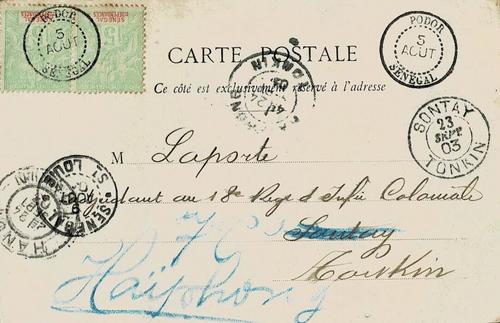 PODOR
5
AOUT
SÉNÉGAL
SÉNÉGAL
CARTE POSTALE
PODOR
5
AOUT
SÉNÉGAL
Ce côté est exclusivement réservé à l'adresse
SONTAY
23
SEPT
03
TONKIN
M Laporte
ST LOUIS
SÉNÉGAL
au 18e Regt d'Infie Coloniale
Sontay
Haïphong
Tonkin